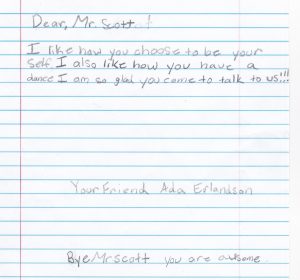 Dear, Mr. Scott!
I like how you choose to be your
self. I also like how you have a
dance I am so glad you come to talk to us!!!
Your Friend Ada Erlandson
Bye Mr scott you are awsome.